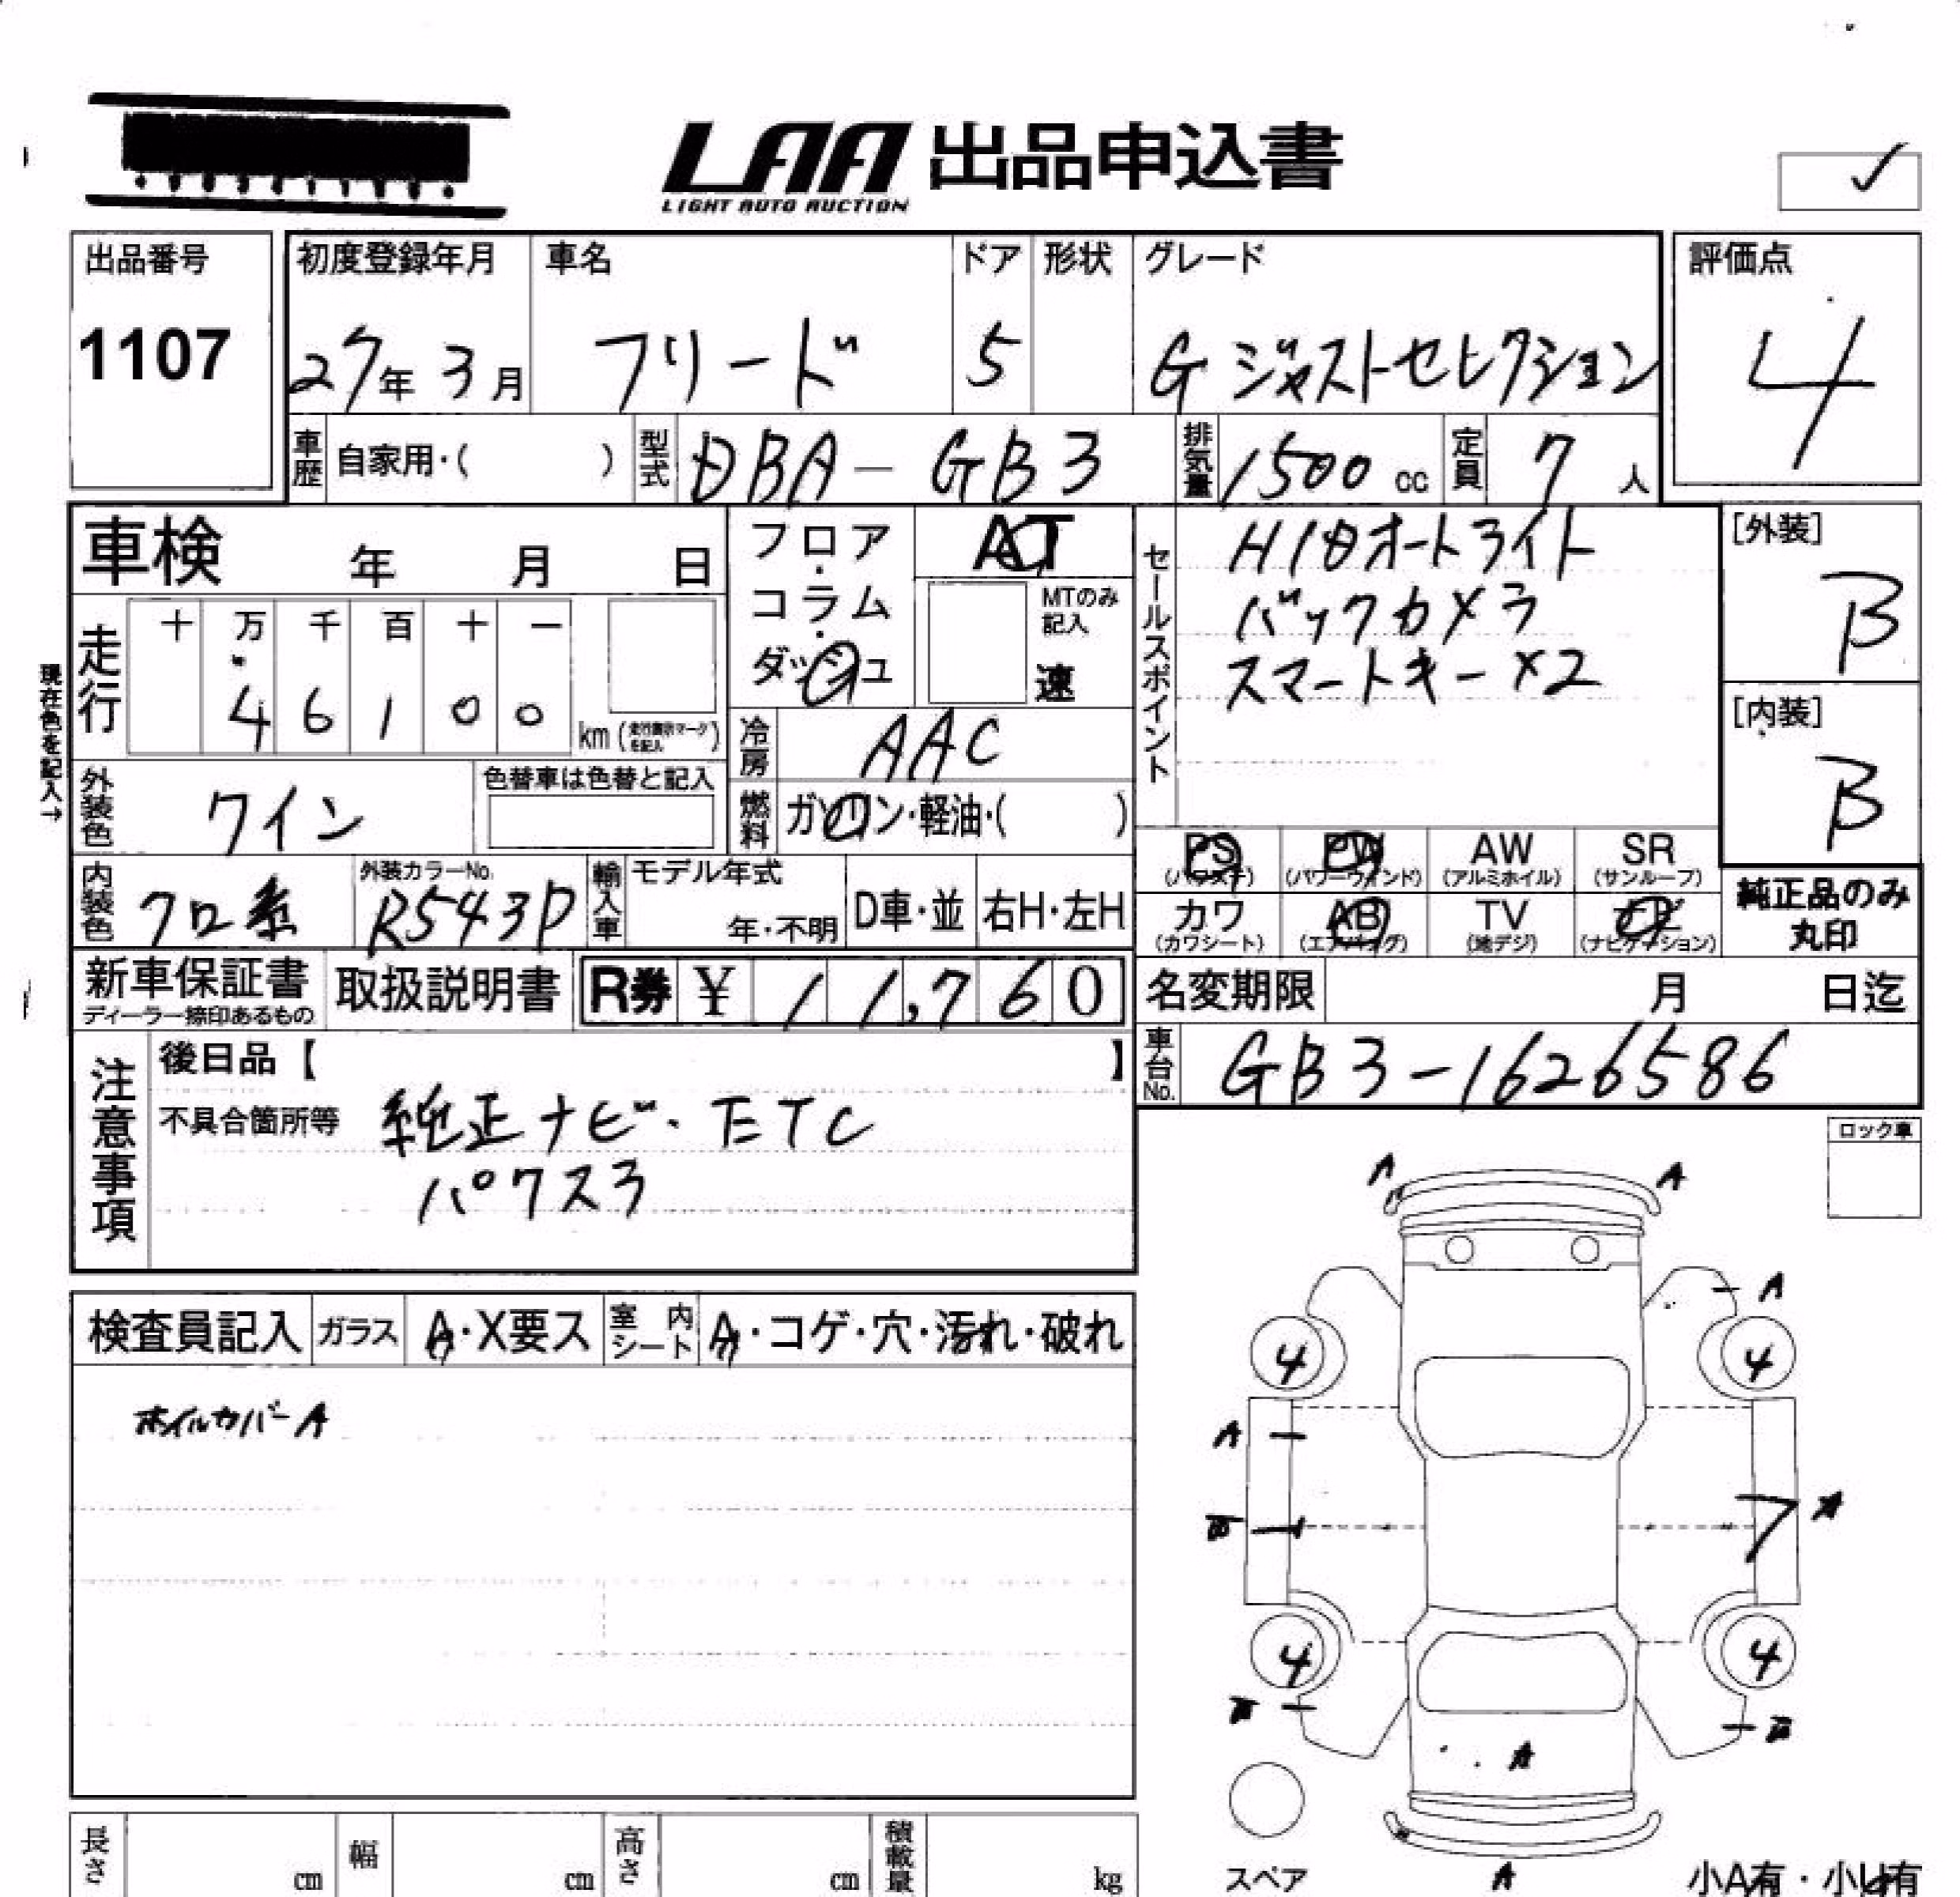 LAA 出品申込書
LIGHT AUTO AUCTION
出品番号
1107
初度登録年月
27年3月
車名
フリード
ドア
5
形状
グレード
G ジャストセレクション
評価点
4
車歴 自家用・( )
型式 DBA-GB3
排気量 1500 cc
定員 7 人
車検 年 月 日
フロア・コラム・ダッシュ
AT
MTのみ記入
速
セールスポイント
HIDオートライト
バックカメラ
スマートキー×2
[外装]
B
[内装]
B
現在色を記入→
走行
十 万 千 百 十 一
4 6 1 0 0 km
冷房 AAC
外装色 ワイン
色替車は色替と記入
燃料 ガソリン・軽油・( )
PS PW AW SR
(パワステ) (パワーウィンド) (アルミホイル) (サンルーフ)
カワ AB TV ナビ
(カワシート) (エアバッグ) (地デジ) (ナビゲーション)
純正品のみ
丸印
内装色 クロ系
外装カラーNo. R543P
輸入車
モデル年式
年・不明
D車・並
右H・左H
新車保証書
ディーラー捺印あるもの
取扱説明書
R券 ¥ 11,760
名変期限 月 日迄
車台No. GB3-1626586
注意事項
後日品【 】
不具合箇所等 純正ナビ・ETC
パワスラ
ロック車
A A
A
4 4
A
A
4 4
A
A
検査員記入
ガラス A・X要ス
室内シート A・コゲ・穴・汚れ・破れ
ホイルカバーA
長さ cm
幅 cm
高さ cm
積載量 kg
スペア
小A有・小U有